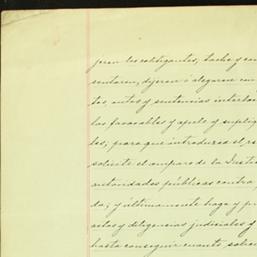 jeren los colitigantes, tache y con
sentaren, dijeren ó alegaren con
tos, autos y sentencias interloc
las favorables y apele y supliq
les; para que introduzca el re
solicite el amparo de la Justi
autoridades públicas contra
da; y últimamente haga y pr
actos y diligencias judiciales
hasta conseguir cuanto solici